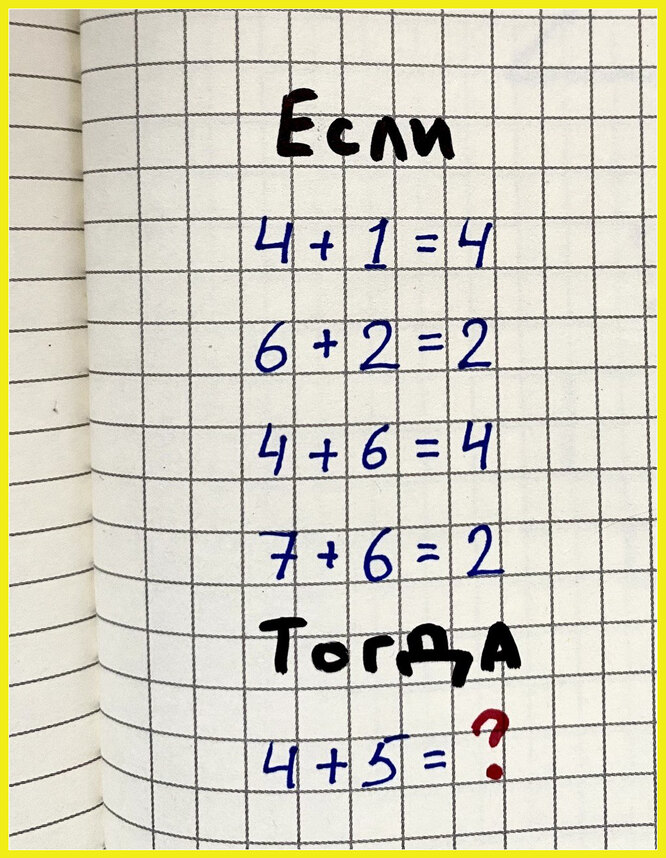 Если
4 + 1 = 4
6 + 2 = 2
4 + 6 = 4
7 + 6 = 2
Тогда
4 + 5 = ?